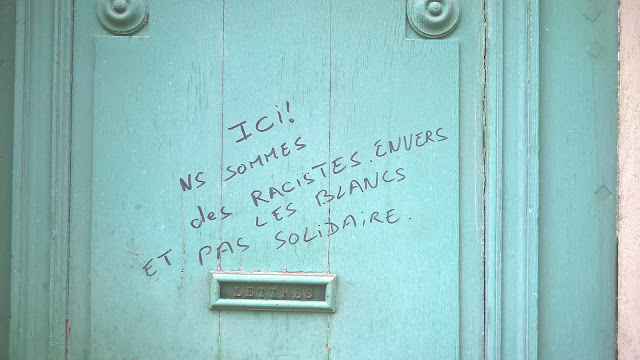 ICi!
NS SOMMES
des RACISTES. ENVERS
LES BLANCS
ET PAS SOLiDAiRE.
LETTRES